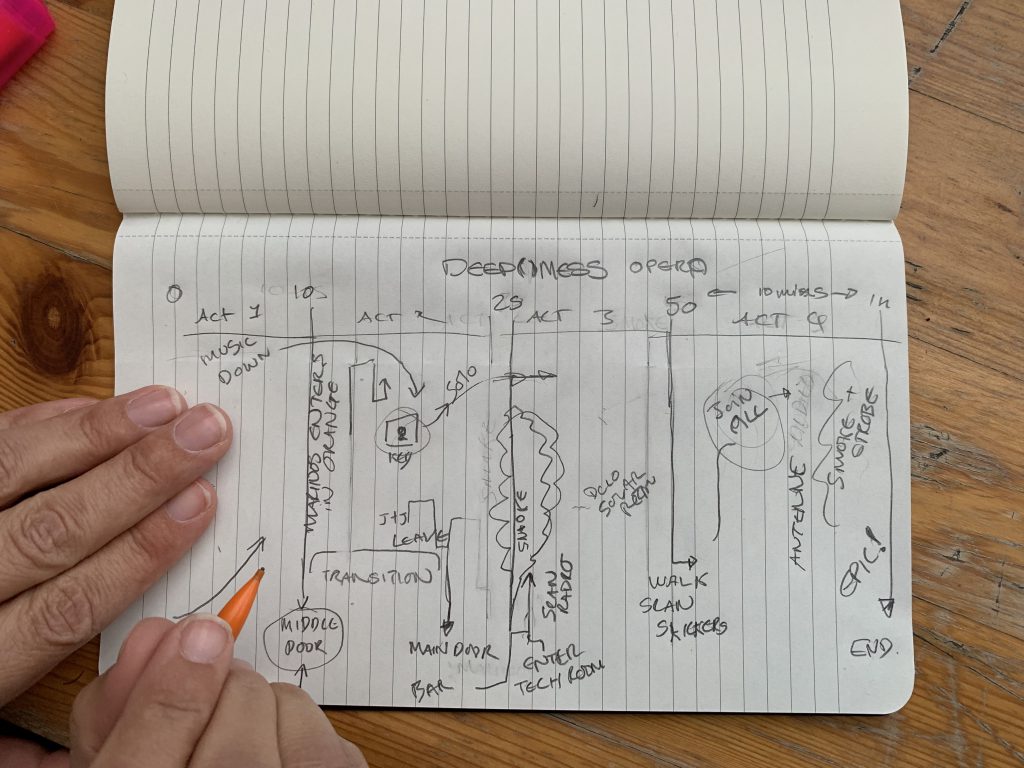 DEEP()NESS OPERA
0
10
25
50
← 10 mins →
1H
ACT 1
ACT 2
ACT 3
ACT 4
MUSIC
DOWN
MARINOS ENTERS
IN ORANGE
SOLO
KEY
J+J
LEAVE
TRANSITION
MIDDLE
DOOR
MAIN DOOR
BAR
SMOKE
SCAN
RADIO
ENTER
TECH ROOM
SOLAR
WALK
SCAN
SPEAKERS
JOIN
ALL
SMOKE +
STROBE
EPIC!
END.